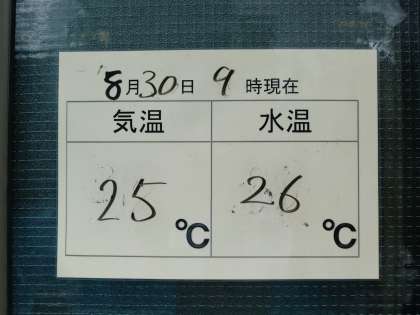 8月30日 9時現在
気温 水温
25℃ 26℃